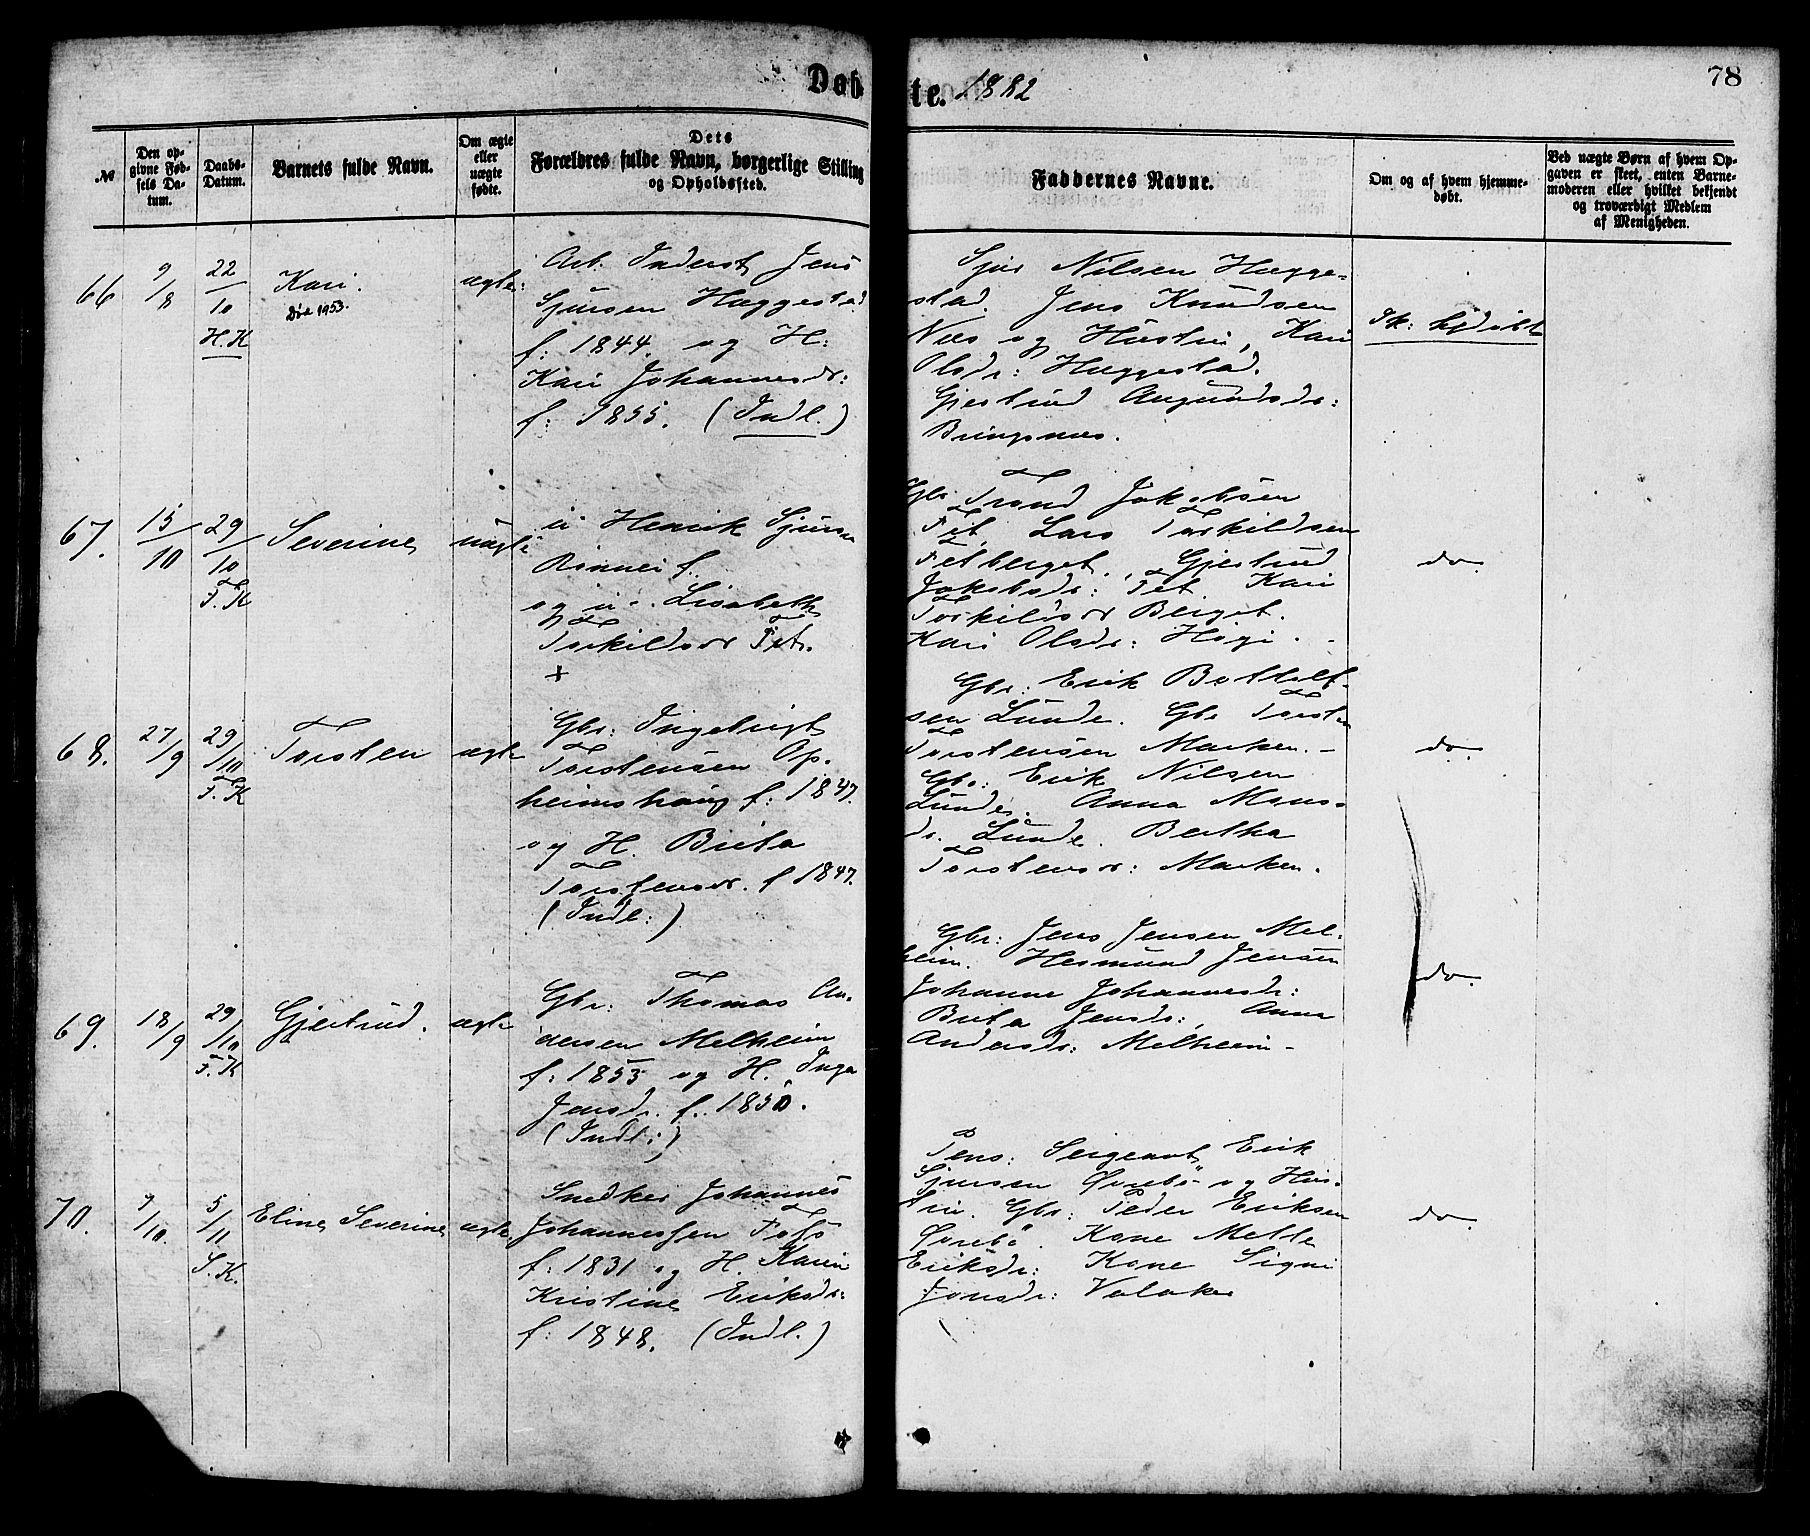 Døbte. 1882
78
№
Den opgivne Fødsels Datum.
Daabs-Datum.
Barnets fulde Navn.
Om ægte eller uægte fødte.
Dets Forældres fulde Navn, borgerlige Stilling og Opholdssted.
Faddernes Navne.
Om og af hvem hjemmedøbt.
Ved uægte Børn af hvem Opgaven er skeet, enten Barnemoderen eller hvilket bekjendt og troværdigt Medlem af Menigheden.
66
9/8
22/10
H.K
Kari.
Død 1953.
ægte:
Arb. Inderst Jens
Sjursen Hæggestad
f: 1844. og H:
Kari Johannesdr:
f: 1855. (Indl.)
Sjur Nilsen Hægge-
stad. Jens Knudsen
Næs og Hustru, Kari
Olsdr: Hæggestad.
Gjertrud Augundsdr:
Bringsnæs.
Ik: hjdøbt
67.
15/10
29/10
F.K
Severine
uægte
u: Henrik Sjursen
Rinnei f..
og u.. Lisabeth
Torkildsdr Fet.
+
Gbr. Trond Jakobsen
Fet, Lars Torkildsen
Fetberget., Gjertrud
Jakobsdr: Fet Kari
Torkildsdr Berget.
Kari Olsdr: Høgi. -
do.
68.
27/9
29/10
F.K
Torsten
ægte
Gbr: Ingebrigt
Torstensen Op-
heimshaug f: 1847.
og H. Brita
Torstensdr. f 1847.
(Indl:)
Gbr: Erik Bottolf-
sen Lunde. Gbr Torsten
Torstensen Marken. -
Gbr: Erik Nilsen
Lunde. Anna Mons-
dr. Lunde. Bertha
Torstensdr: Marken.
do.
69.
18/9
29/10
F.K
Gjertrud.
ægte
Gbr: Thomas An-
dersen Melheim
f: 1853 og H. Inga
Jensdr. f. 1850.
(Indl:)
Gbr: Jens Jensen Mel-
heim. Hermund Jensen
Johanne Johannesdr:
Brita Jensdr:, Anna
Andersdr: Melheim -
do.
70.
9/10.
5/11
S.K.
Eline Severine
ægte
Snedker Johannes
Johannessen Foss
f: 1831 og H. Karen
Kristine Eriksdr:
f: 1848. (Indl.)
Pens: Sergeant Erik
Sjursen Øvrebö og Hus-
tru. Gbr: Peder Eriksen
Øvrebö. Kone Melle
Eriksdr: Kone Signi
Jonsdr: Valaker
do.